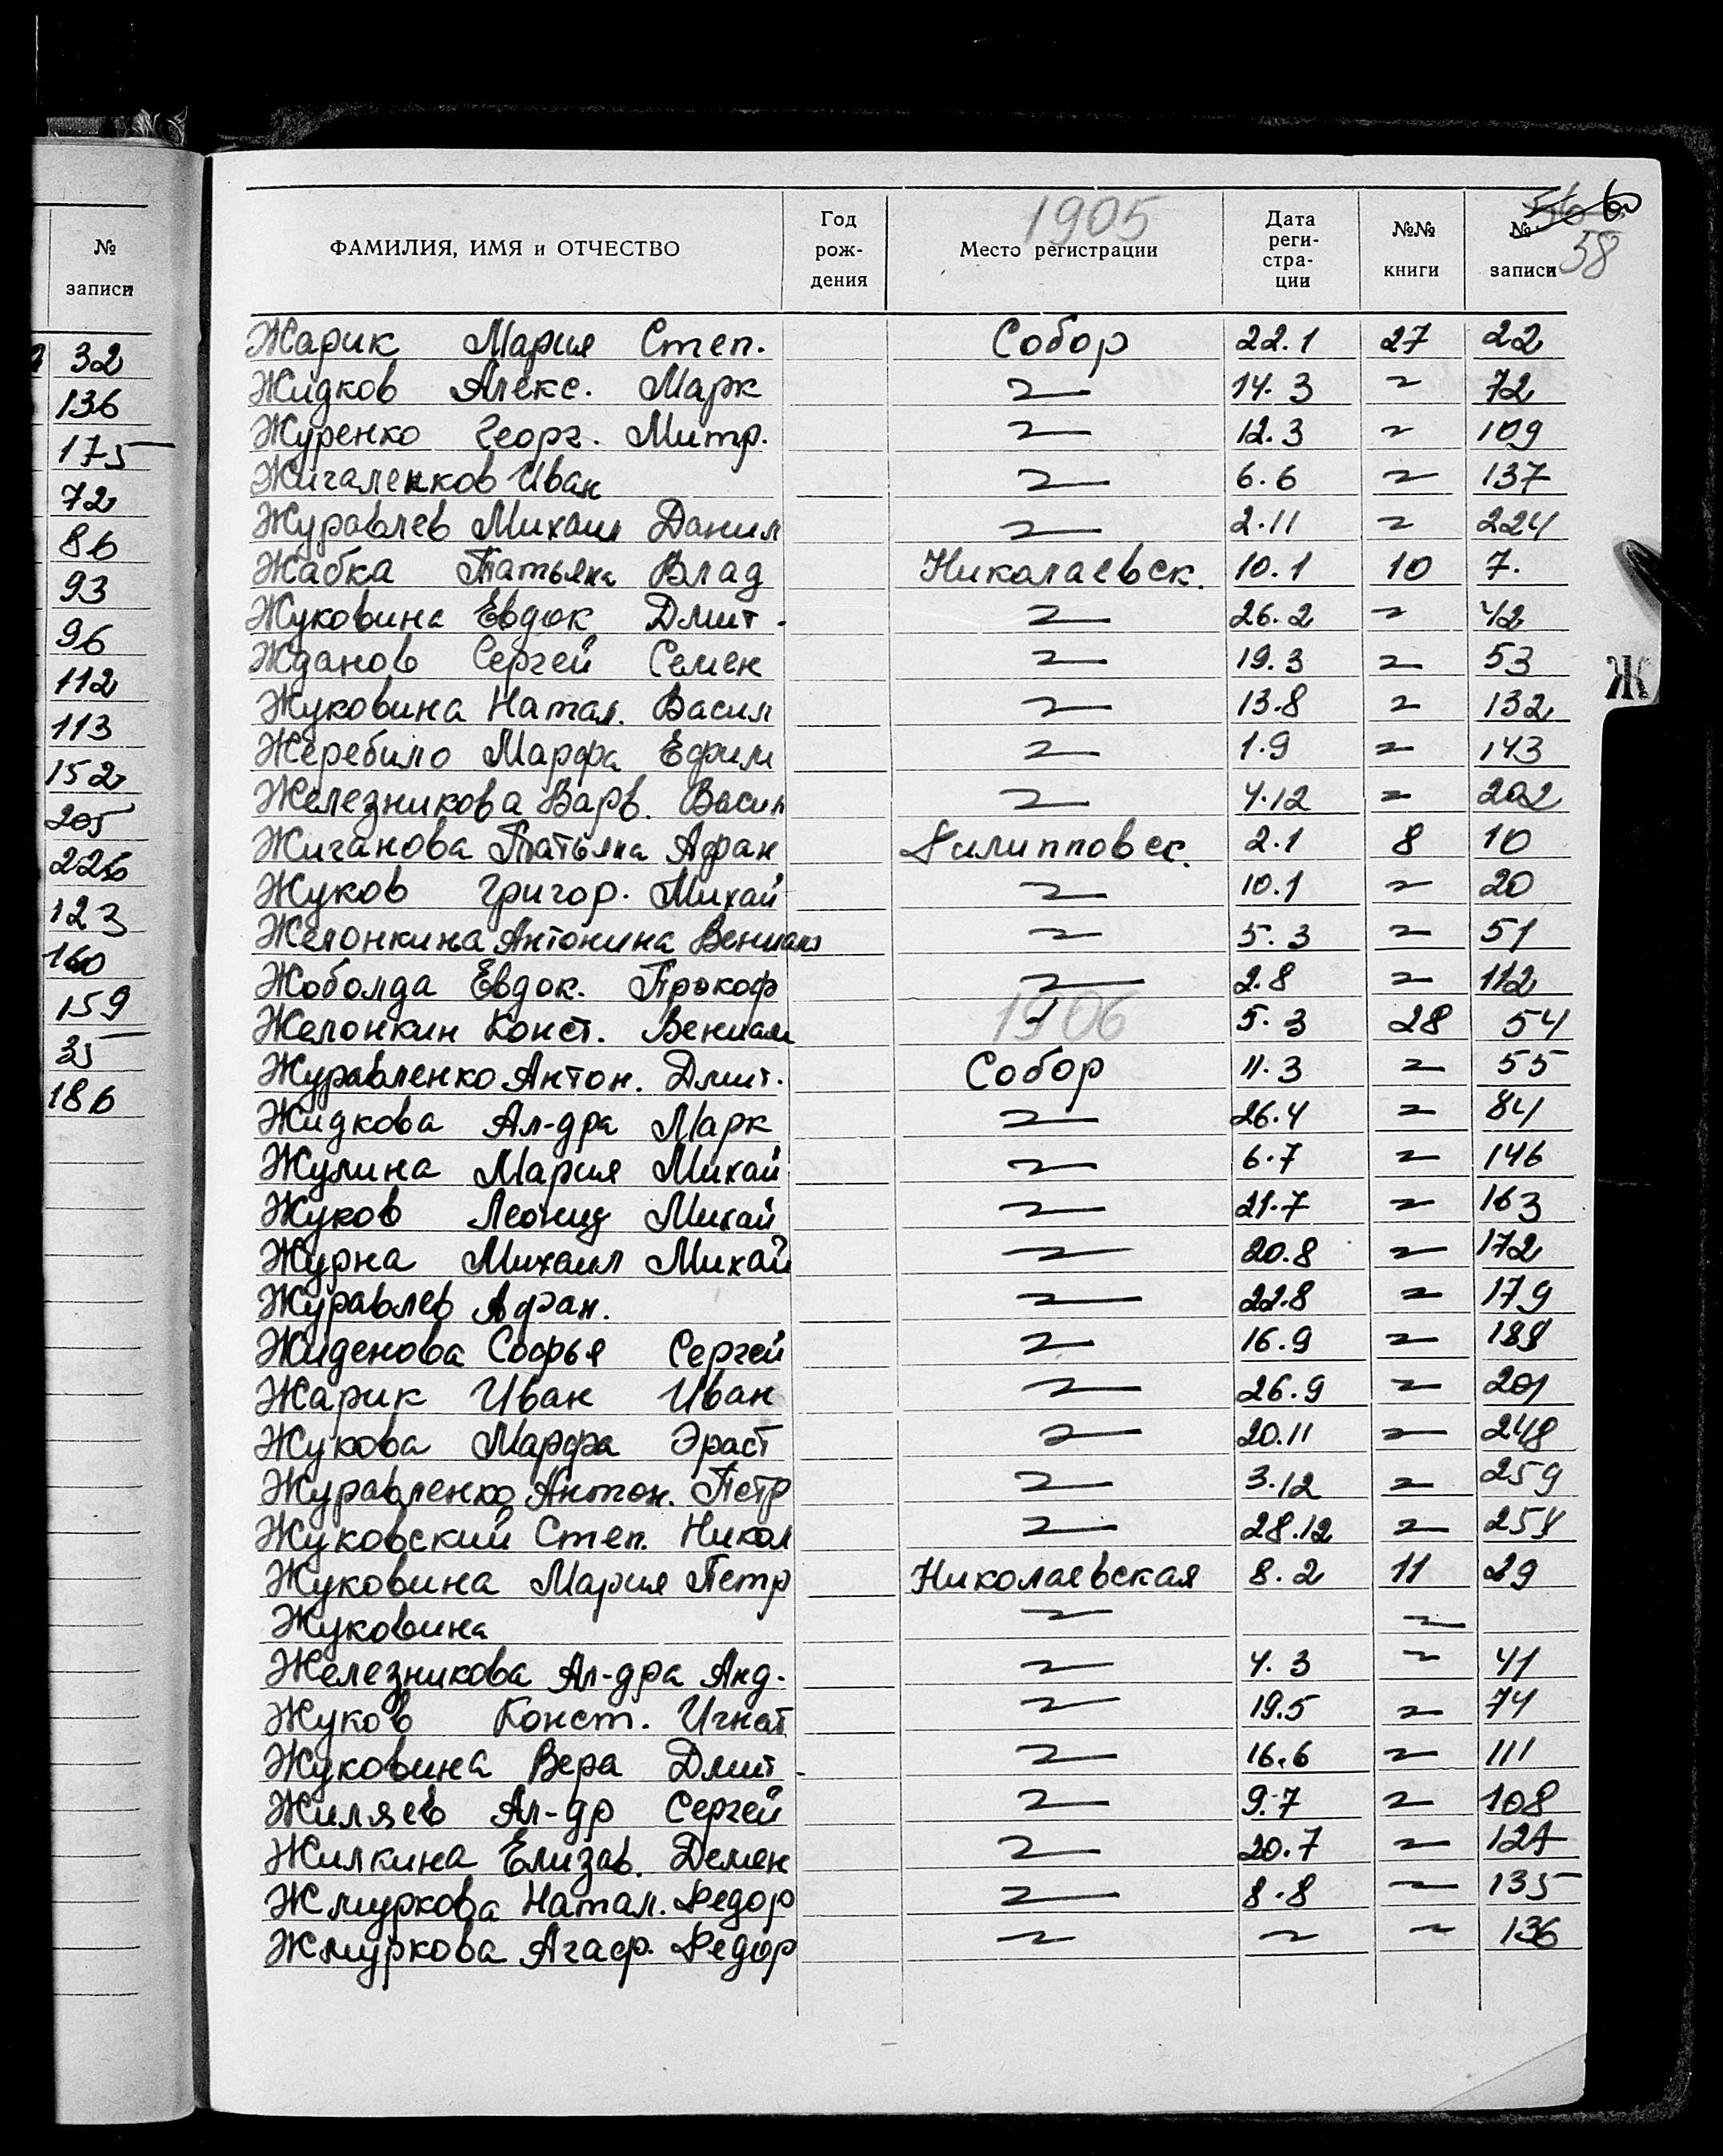 №
записи
32
136
175
72
86
93
96
112
113
152
205
226
123
160
159
35
186
1905
56 60
58
ФАМИЛИЯ, ИМЯ и ОТЧЕСТВО Год рож- дения Место регистрации Дата реги- стра- ции №№ книги № записи
Жарик Мария Степ. Собор 22.1 27 22
Жидков Алекс. Марк 〃 14.3 〃 72
Журенко Георг. Митр. 〃 12.3 〃 109
Жигаленков Иван 〃 6.6 〃 137
Журавлев Михаил Данил 〃 2.11 〃 224
Жабка Татьяна Влад Николаевск. 10.1 10 7.
Жуковина Евдок Дмит. 〃 26.2 〃 42
Жданов Сергей Семен 〃 19.3 〃 53
Жуковина Натал. Васил 〃 13.8 〃 132
Жеребило Марфа Ефрем 〃 1.9 〃 143
Железникова Варв. Васил 〃 4.12 〃 202
Жиганова Татьяна Афан Филипповск. 2.1 8 10
Жуков Григор. Михай 〃 10.1 〃 20
Желонкина Антонина Вениам 〃 5.3 〃 51
Жоболда Евдок. Прокоф 〃 2.8 〃 112
1906
Желонкин Конст. Вениам 5.3 28 54
Журавленко Антон. Дмит. Собор 11.3 〃 55
Жидкова Ал-дра Марк 〃 26.4 〃 84
Жулина Мария Михай 〃 6.7 〃 146
Жуков Леонид Михай 〃 21.7 〃 163
Журна Михаил Михай 〃 20.8 〃 172
Журавлев Афан. 〃 22.8 〃 179
Жиденова Софья Сергей 〃 16.9 〃
Жарик Иван Иван 〃 26.9 〃 201
Жукова Марфа Эраст 〃 20.11 〃 248
Журавленко Антон. Петр 〃 3.12 〃 259
Жуковский Степ. Никол 〃 28.12 〃
Жуковина Мария Петр Николаевская 8.2 11 29
Жуковина 〃 〃
Железникова Ал-дра Анд. 〃 4.3 〃 41
Жуков Конст. Игнат 〃 19.5 〃 74
Жуковина Вера Дмит. 〃 16.6 〃 111
Жиляев Ал-др Сергей 〃 9.7 〃 108
Жилкина Елизав. Демен 〃 20.7 〃 127
Жмуркова Натал. Федор 〃 8.8 〃 135
Жмуркова Агаф. Федор 〃 〃 〃 136
Ж